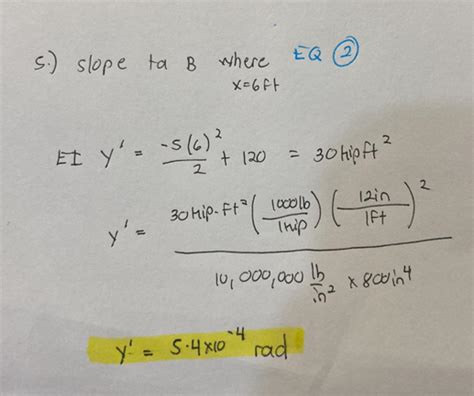 5.) slope ta B where EQ 2
x=6ft
EI y' = -5(6)²/2 + 120 = 30kip ft²
y' = 30kip-ft² (1000lb/1kip) (12in/1ft)² / 10,000,000 lb/in² x 800in⁴
y' = 5.4x10⁻⁴ rad